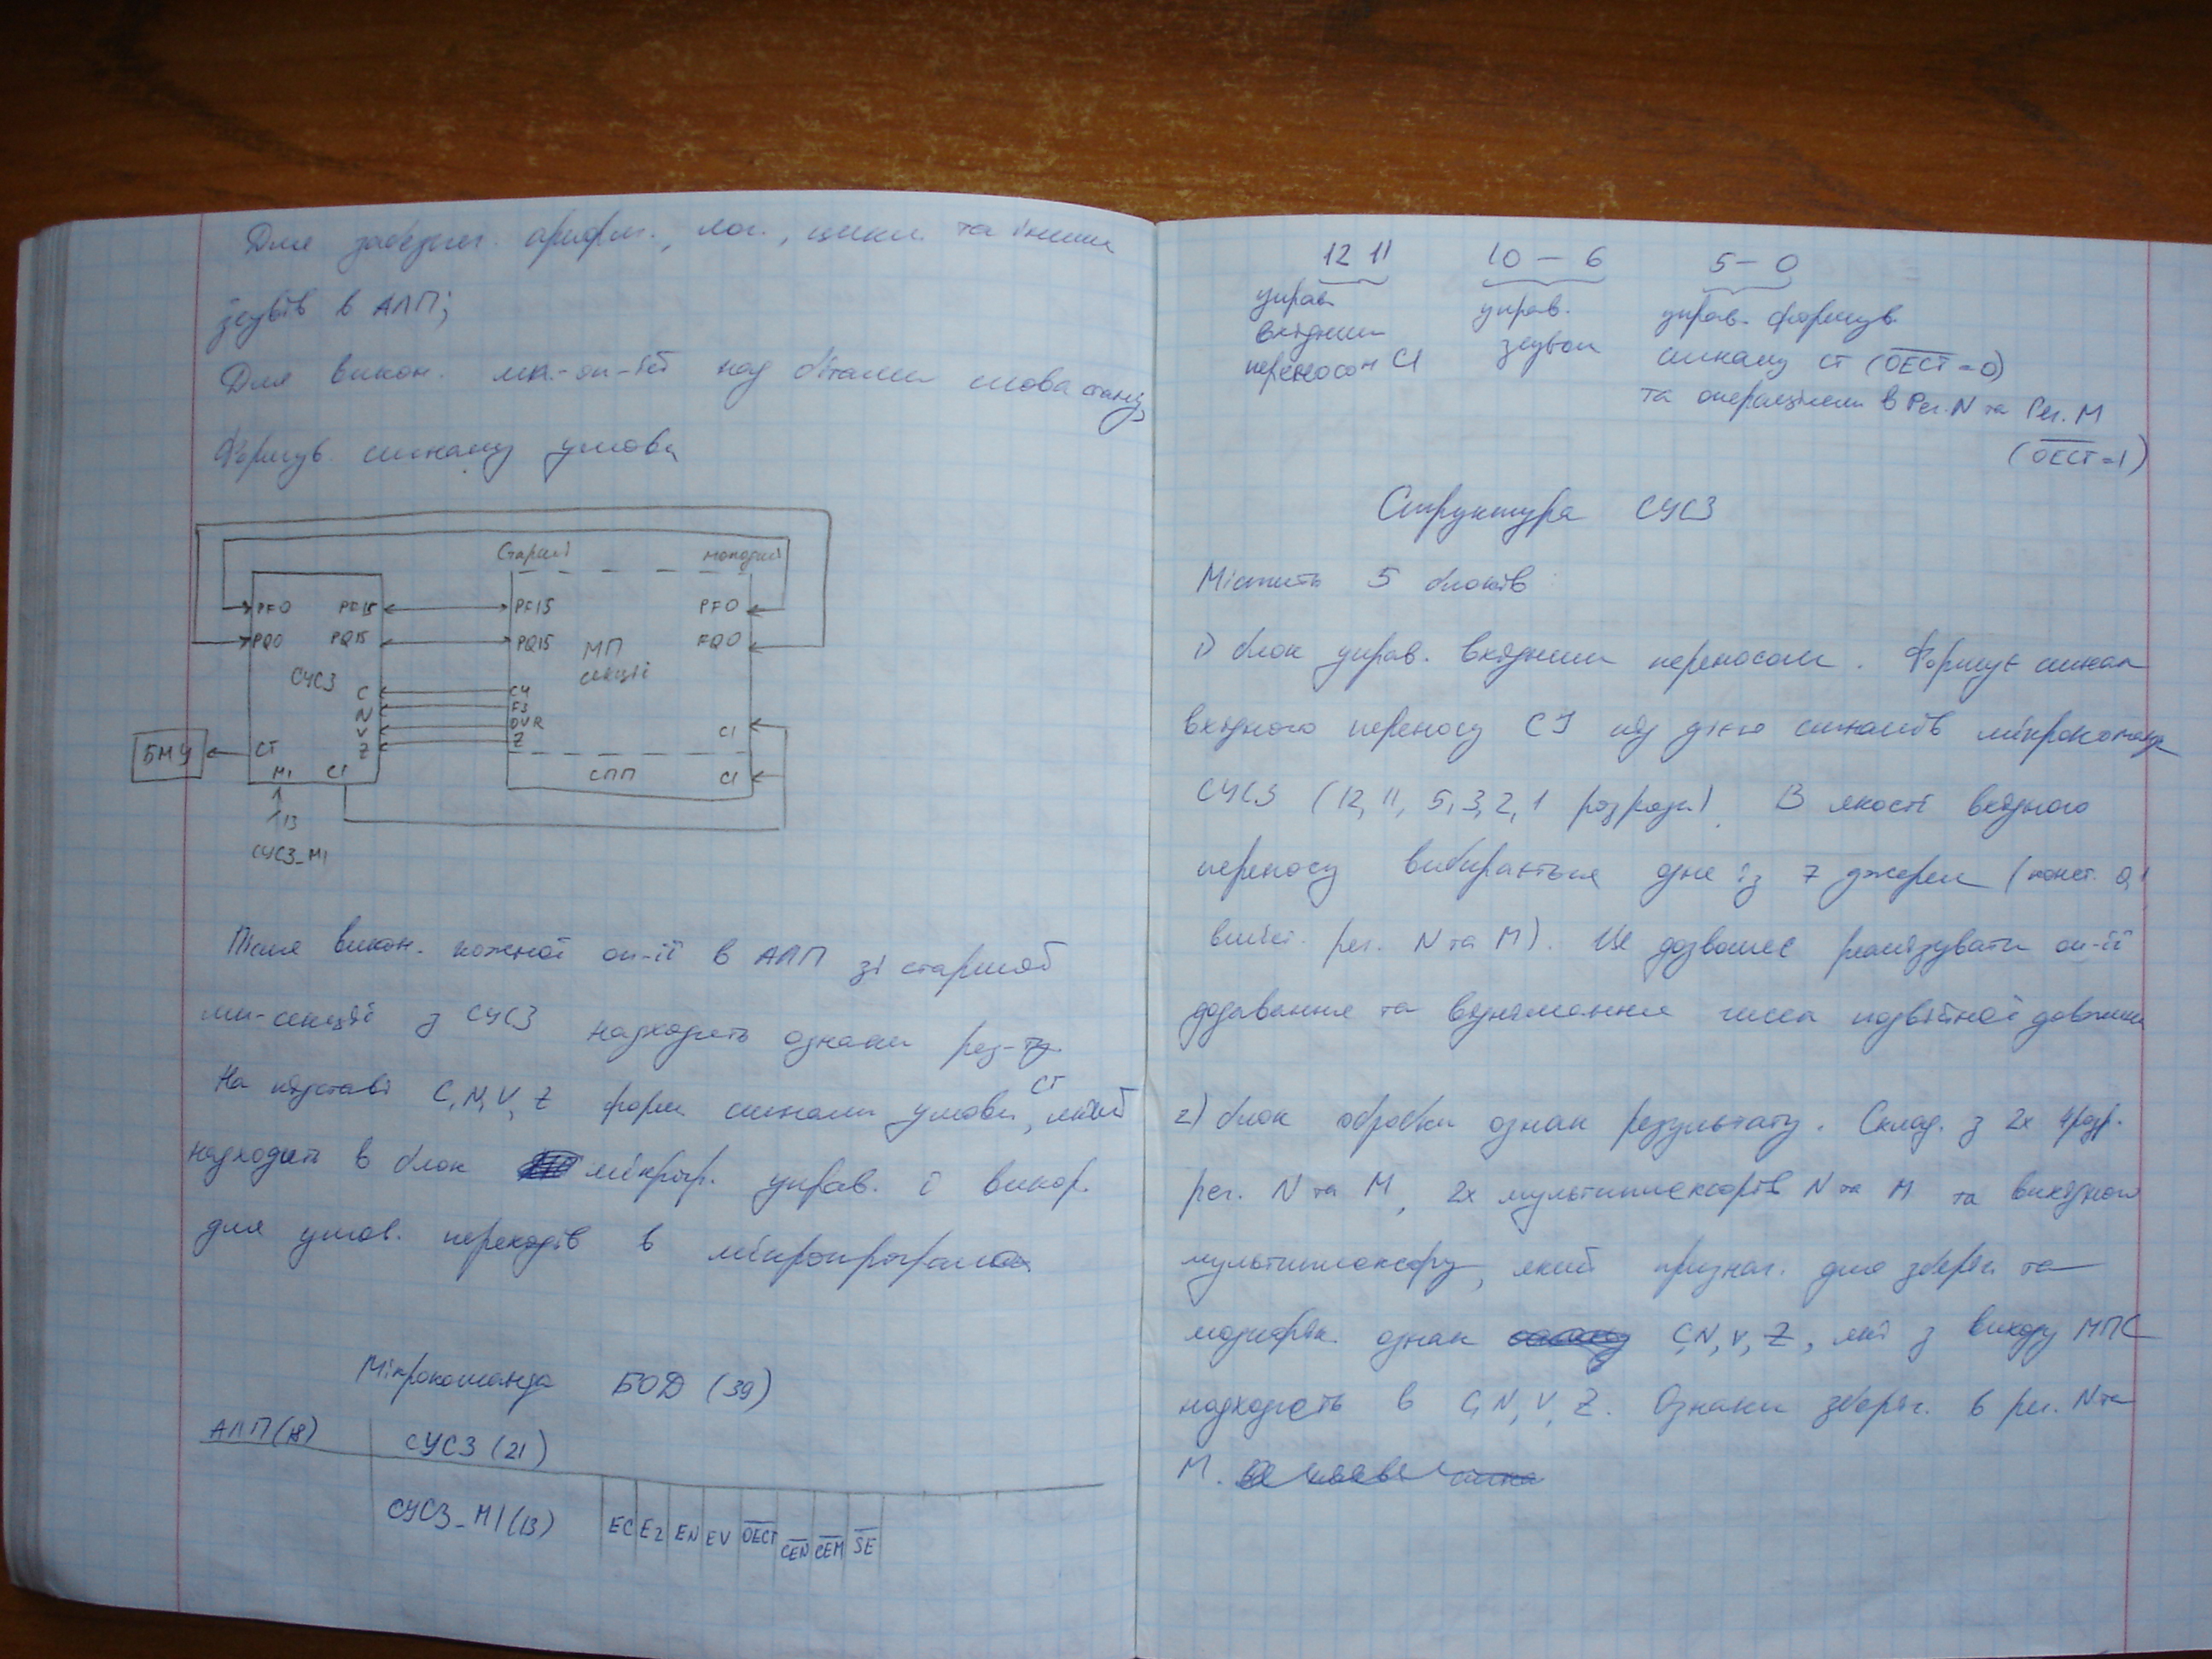 Для забезпеч. арифм., лог., цикл. та інших
зсувів в АЛП;
Для викон. мк.-оп-ій над бітами слова стану
Формув. сигналу умови
Старші молодші
PF0 PF15 PF15 PF0
PQ0 PQ15 PQ15 МП PQ0
СУСЗ секції
C C4
N F3
V OVR CI
БМУ CT Z Z
MI CI СПП CI
13
СУСЗ_MI
Після викон. кожної оп-ії в АЛП зі старшої
мп-секції з СУСЗ надходять ознаки рез-ту.
На підставі C, N, V, Z форм. сигнали умови CT, який
надходит в блок мікропр. управ. і викор.
для умов. переходів в мікропрограмах
Мікрокоманда БОД (39)
АЛП(18) СУСЗ (21)
СУСЗ_MI(13) EC EZ EN EV OECT CEN CEM SE
12 11 10 – 6 5 – 0
управ. управ. управ. формув.
вхідним зсувом сигналу CT (OECT = 0)
переносом CI та операціями в Рег. N та Рег. M
(OECT = 1)
Структура СУСЗ
Містить 5 блоків
1) блок управ. вхідним переносом. Формує сигнал
вхідного переносу CI під дією сигналів мікрокоманди
СУСЗ (12, 11, 5, 3, 2, 1 розряди). В якості вхідного
переносу вибирається одне із 7 джерел (конст. 0,1
вміст. рег. N та M). Це дозволяє реалізувати оп-ії
додавання та віднімання чисел подвійної довжини
2) блок обробки ознак результату. Склад. з 2х 4розр.
рег. N та M, 2х мультиплексорів N та M та вихідного
мультиплексору, який признач. для зберіг. та
модифік. ознак C,N,V,Z, які з виходу МПС
надходять в C, N, V, Z. Ознаки зберіг. в рег. N та
M.